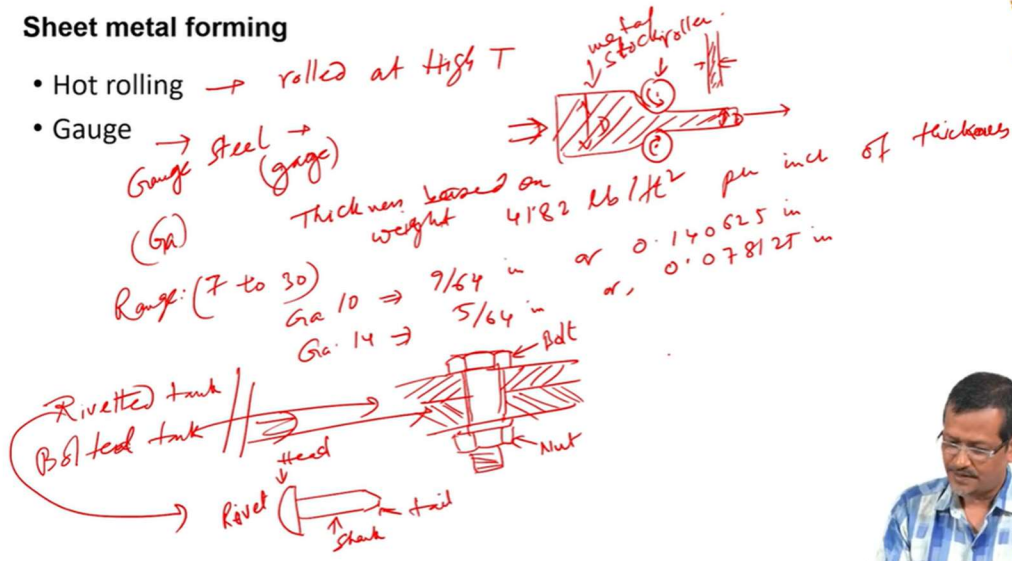 Sheet metal forming
• Hot rolling → rolled at High T
• Gauge
metal
stock
roller
D
Gauge Steel →
(gage)
(Ga)
Thickness based on
weight 41.82 lb/ft² per inch of thickness
Range: (7 to 30)
Ga 10 ⇒ 9/64 in or 0.140625 in
Ga. 14 ⇒ 5/64 in or, 0.078125 in
Rivetted tank
Bolted tank
Bolt
Nut
Head
Rivet
Shank
tail